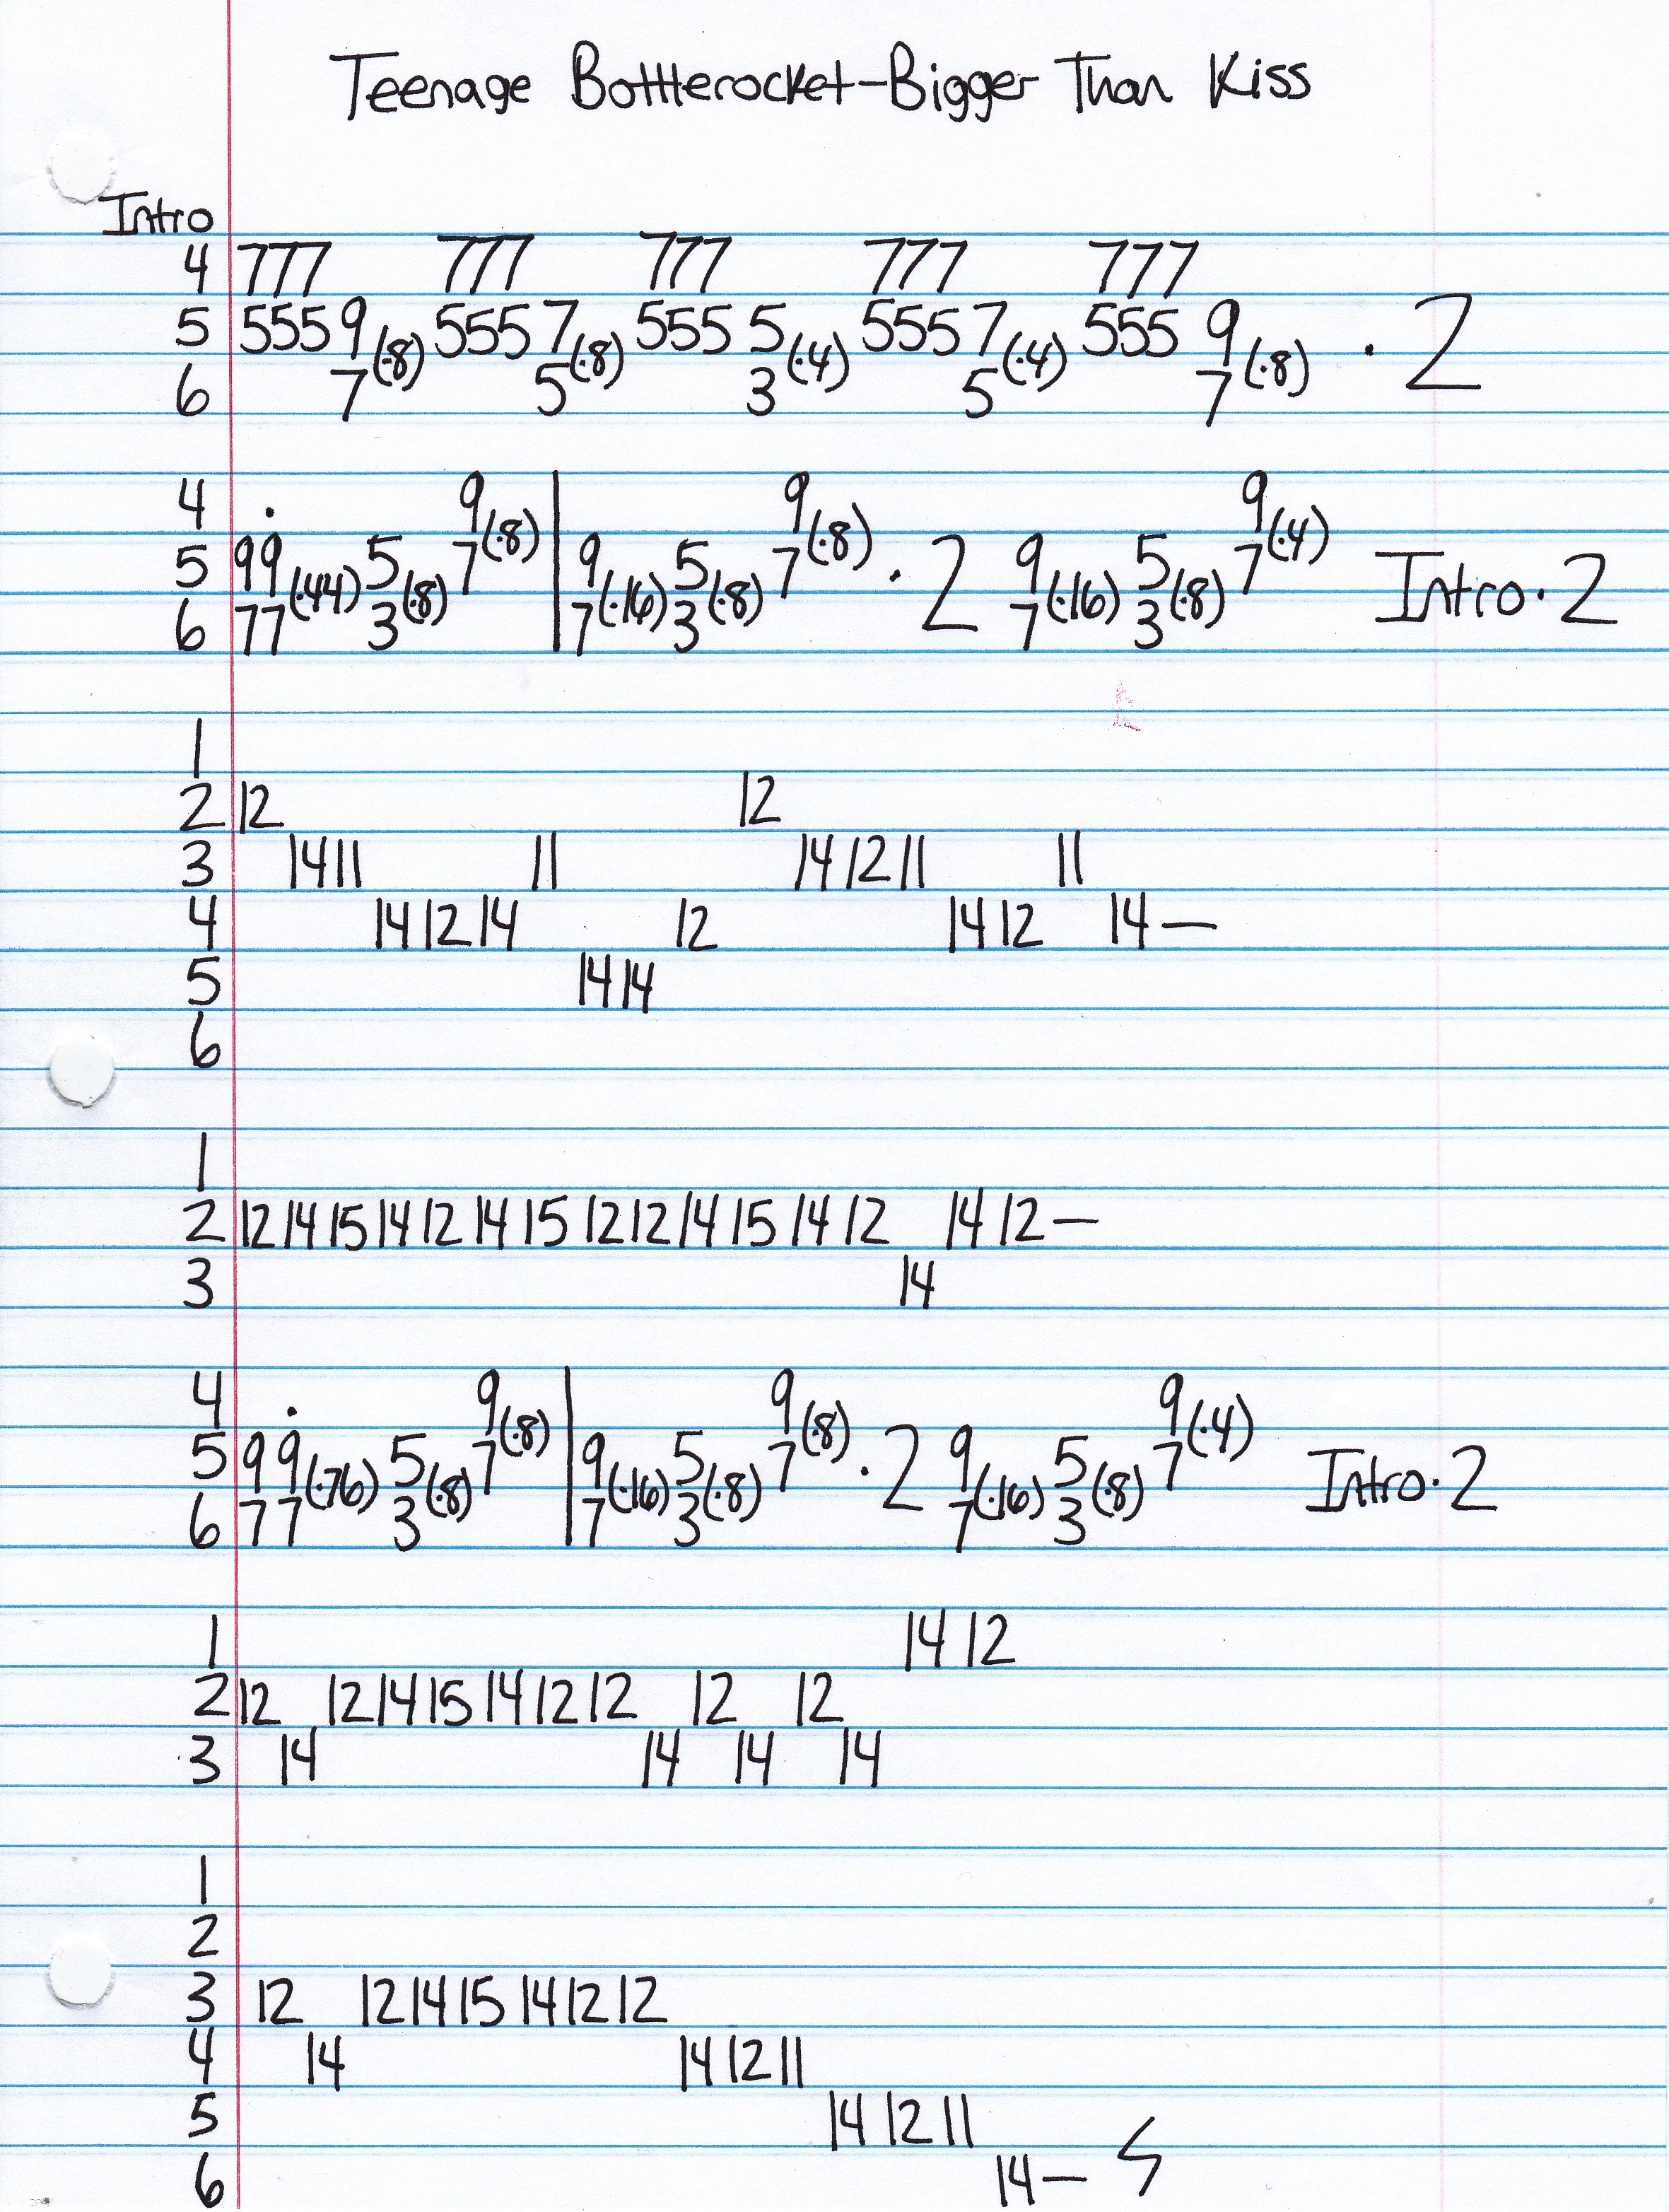 Teenage Bottlerocket-Bigger Than Kiss
Intro
4 777 777 777 777 777
5 5559 (·8) 5557 (·8) 555 5 (·4) 5557 (·4) 555 9 (·8) · 2
6 7 5 3 5 7
4 · 9 (·8) | 9 (·8) 9 (·4)
5 99 (·44) 5 (·8) 7 | 9 (·16) 5 (·8) 7 · 2 9 (·16) 5 (·8) 7 Intro · 2
6 77 3 | 7 3 7 3
1
2 12 12
3 14 11 11 14 12 11 11
4 14 12 14 12 14 12 14 —
5 14 14
6
1
2 12 14 15 14 12 14 15 12 12 14 15 14 12 14 12 —
3 14
4 · 9 (·8) | 9 (·8) 9 (·4)
5 9 9 (·76) 5 (·8) 7 | 9 (·16) 5 (·8) 7 · 2 9 (·16) 5 (·8) 7 Intro · 2
6 7 7 3 | 7 3 7 3
1 14 12
2 12 12 14 15 14 12 12 12 12
3 14 14 14 14
1
2
3 12 12 14 15 14 12 12
4 14 14 12 11
5 14 12 11
6 14 —